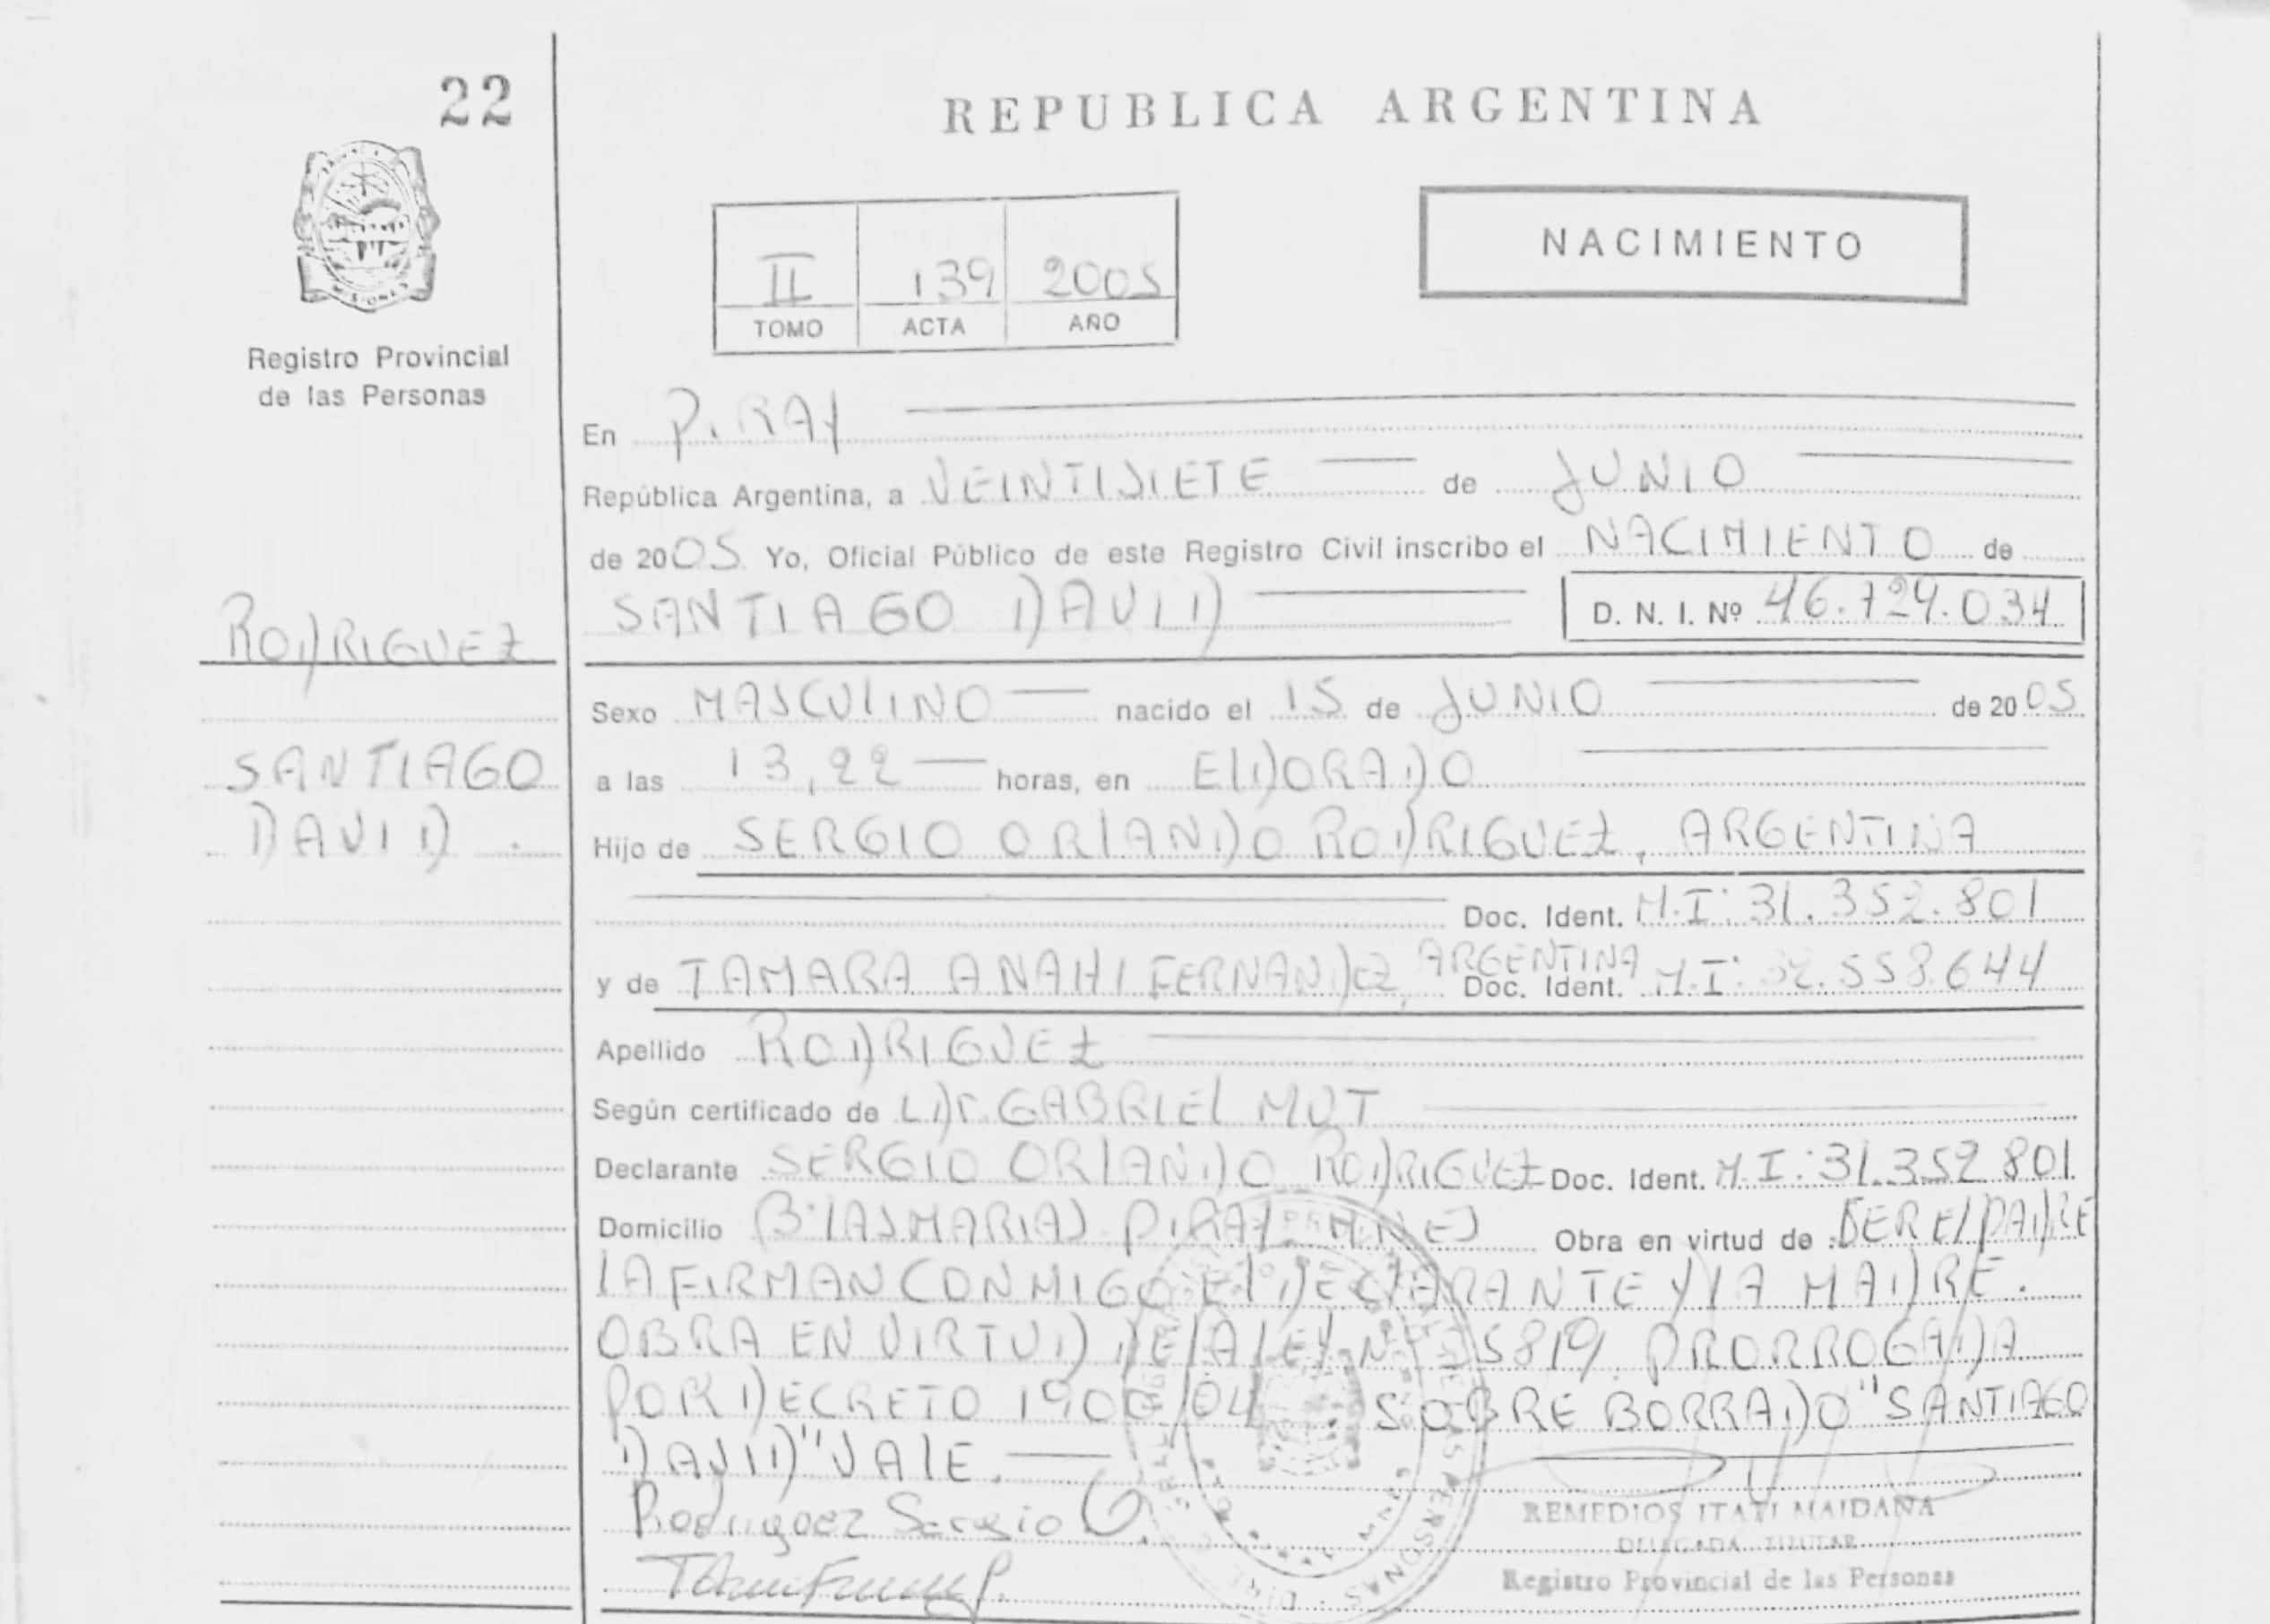 22
REPUBLICA ARGENTINA
MISIONES
Registro Provincial
de las Personas
II 139 2005
TOMO ACTA AÑO
NACIMIENTO
En PIRAY
República Argentina, a VEINTISIETE de JUNIO
de 2005 Yo, Oficial Público de este Registro Civil inscribo el NACIMIENTO de
SANTIAGO DAVID D. N. I. Nº 46.729.034
RODRIGUEZ
SANTIAGO
DAVID.
Sexo MASCULINO nacido el 15 de JUNIO de 2005
a las 13,22 horas, en ELDORADO
Hijo de SERGIO ORLANDO RODRIGUEZ, ARGENTINA
Doc. Ident. M.I: 31.352.801
y de TAMARA ANAHI FERNANDEZ, ARGENTINA Doc. Ident. M.I: 32.558.644
Apellido RODRIGUEZ
Según certificado de GABRIEL MUT
Declarante SERGIO ORLANDO RODRIGUEZ Doc. Ident. M.I: 31.352.801
Domicilio Bº LAS MARIAS PIRAY MNES Obra en virtud de SER EL PADRE
LA FIRMAN CONMIGO EL DECLARANTE Y LA MADRE.
OBRA EN VIRTUD DE LA LEY Nº 25819 PRORROGADA
POR DECRETO 1900/04. SOBRE BORRADO "SANTIAGO
DAVID" VALE.
Rodriguez Sergio O.
REMEDIOS ITATI MAIDANA
DELEGADA TITULAR
Registro Provincial de las Personas